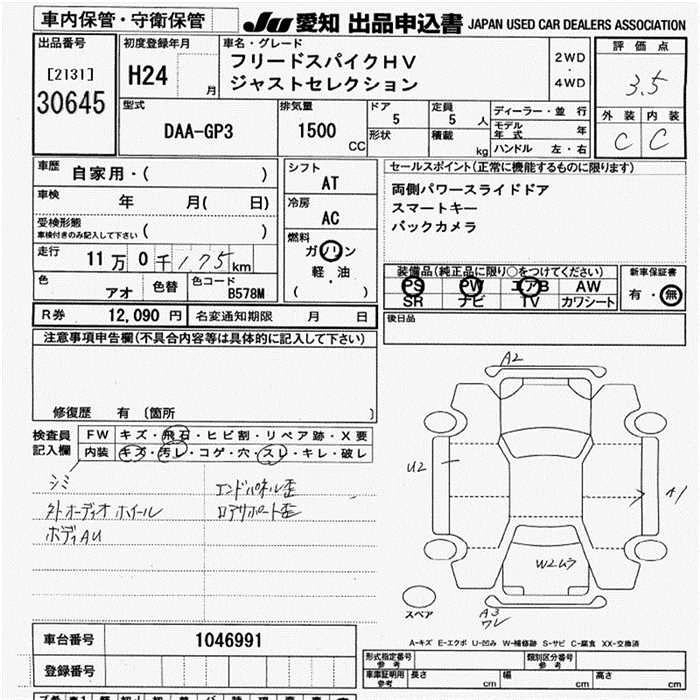 車内保管・守衛保管
JU 愛知 出品申込書 JAPAN USED CAR DEALERS ASSOCIATION
出品番号
[2131]
30645
初度登録年月
H24 月
車名・グレード
フリードスパイクHV
ジャストセレクション
2WD
・
4WD
評価点
3.5
外装 内装
C C
型式
DAA-GP3
排気量
1500 CC
ドア
5
形状
定員
5 人
積載 kg
ディーラー・並行
モデル年式
ハンドル 左・右
車歴
自家用・( )
車検 年 月( 日)
受検形態
車検付きのみ記入して下さい ( )
走行
11万0千175km
色
アオ
色替
色コード
B578M
シフト
AT
冷房
AC
燃料
ガソリン
軽・油
( )
セールスポイント(正常に機能するものに限ります)
両側パワースライドドア
スマートキー
バックカメラ
装備品(純正品に限り○をつけてください)
PS PW エアB AW
SR ナビ TV カワシート
新車保証書
有・無
R券 12,090 円 名変通知期限 月 日
後日品
注意事項申告欄(不具合内容等は具体的に記入して下さい)
修復歴 有 〔箇所 〕
検査員
記入欄
FW キズ・飛石・ヒビ割・リペア跡・X要
内装 キズ・汚レ・コゲ・穴・スレ・キレ・破レ
シミ
外オーディオ ホイール
ボディAU
エンドパネル歪
ロアサポート歪
A2
U2
A1
W2ムラ
A3
ワレ
スペア
A-キズ E-エクボ U-凹み W-補修跡 S-サビ C-腐食 XX-交換済
車台番号 1046991
登録番号
形式指定番号
参考
類別区分番号
参考
車庫証明用
参考
長さ cm 幅 cm 高さ cm